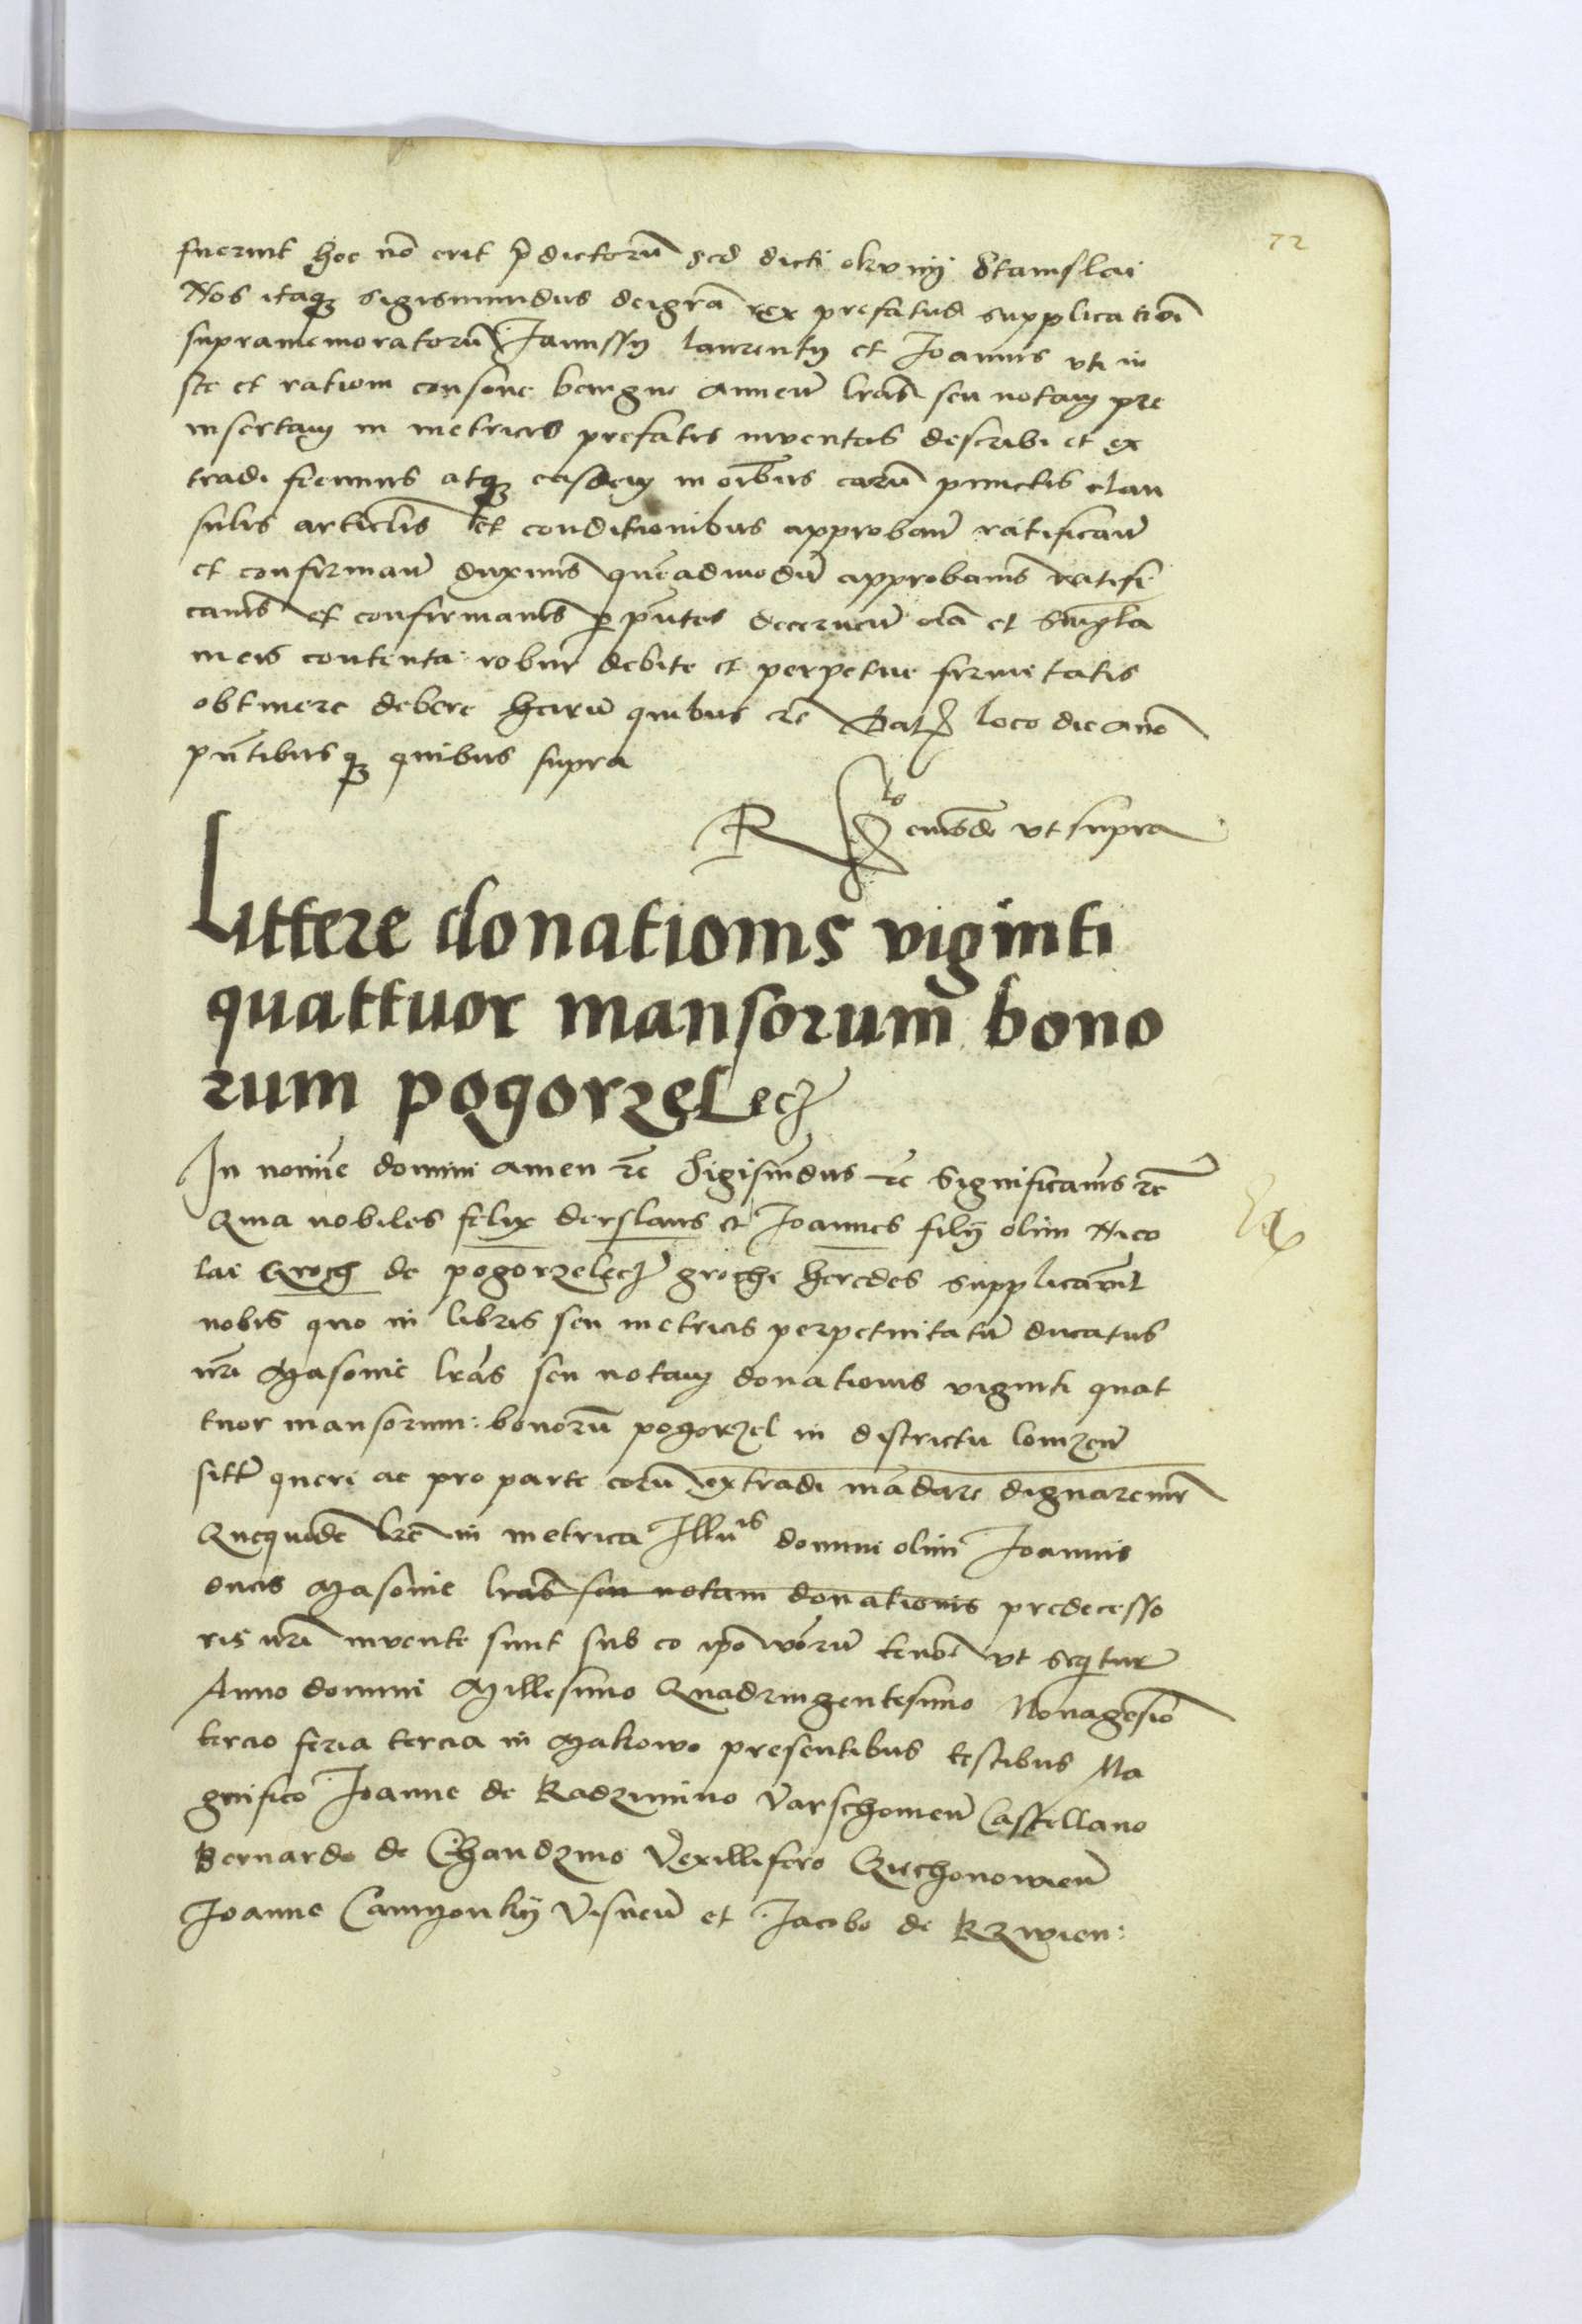 72
fuerint hoc nō erit p̄dictorū sed dicti okvnij Stanislai
Nos itaqꝫ Sigismundus dei grā rex prefatus supplicationi
supramemoratorū Janussij laurentij et Joannis vti iu
ste et rationi consone benigne annuen̄ lrās seu notam pre
insertam in metricis prefatis inventas describi et ex
tradi fecimus atqꝫ easdem in oībus earū punctis clau
sulis articlis et conditionibus approban̄ ratifican̄
et confirman̄ duximus quēadmodū approbamus ratifi
camus et confirmamus p̱ pn̄tes decernen̄ oīa et singla
in eis contenta robur debite et perpetue firmitatis
obtinere debere harū quibus rc̄ Datꝭ loco die anno
pn̄tibusqꝫ quibus supra
R eiusdē vt supra
Littere donationis viginti
quattuor mansorum bono
rum pogorzelecꝭ
In nomine domini amen rc̄ Sigismūdus rc̄ Significamus rc̄
Quia nobiles felix derslaus et Joannes filij olim Nico
lai Groch de pogorzelecꝭ groche heredes supplicarūt
nobis quo in libris seu metricis perpetuitatū ducatus
nrī Masovie lrās seu notam donationis viginti quat
tuor mansorum: bonorū pogorzel in districtu lomzen̄
sitt̄ queri ac pro parte eorū extradi mādare dignaremr̄
Quequidē lrē in metrica Illu͞is domini olim Joannis
ducis Masovie lrās seu notam donationis predecesso
ris nrī invente sunt sub eo ip̄o v̄borū tenōe vt sequitur
Anno domini Millesimo Quadringentesimo Nonagesīo
tercio feria tercia in Makowo presentibus testibus Ma
gnifico Joanne de Radzimino Varschovien̄ Castellano
Bernardo de Chandzino Vexillifero Czechonowien̄
Joanne Camyonkij Visnen̄ et Jacobo de Krzwien: